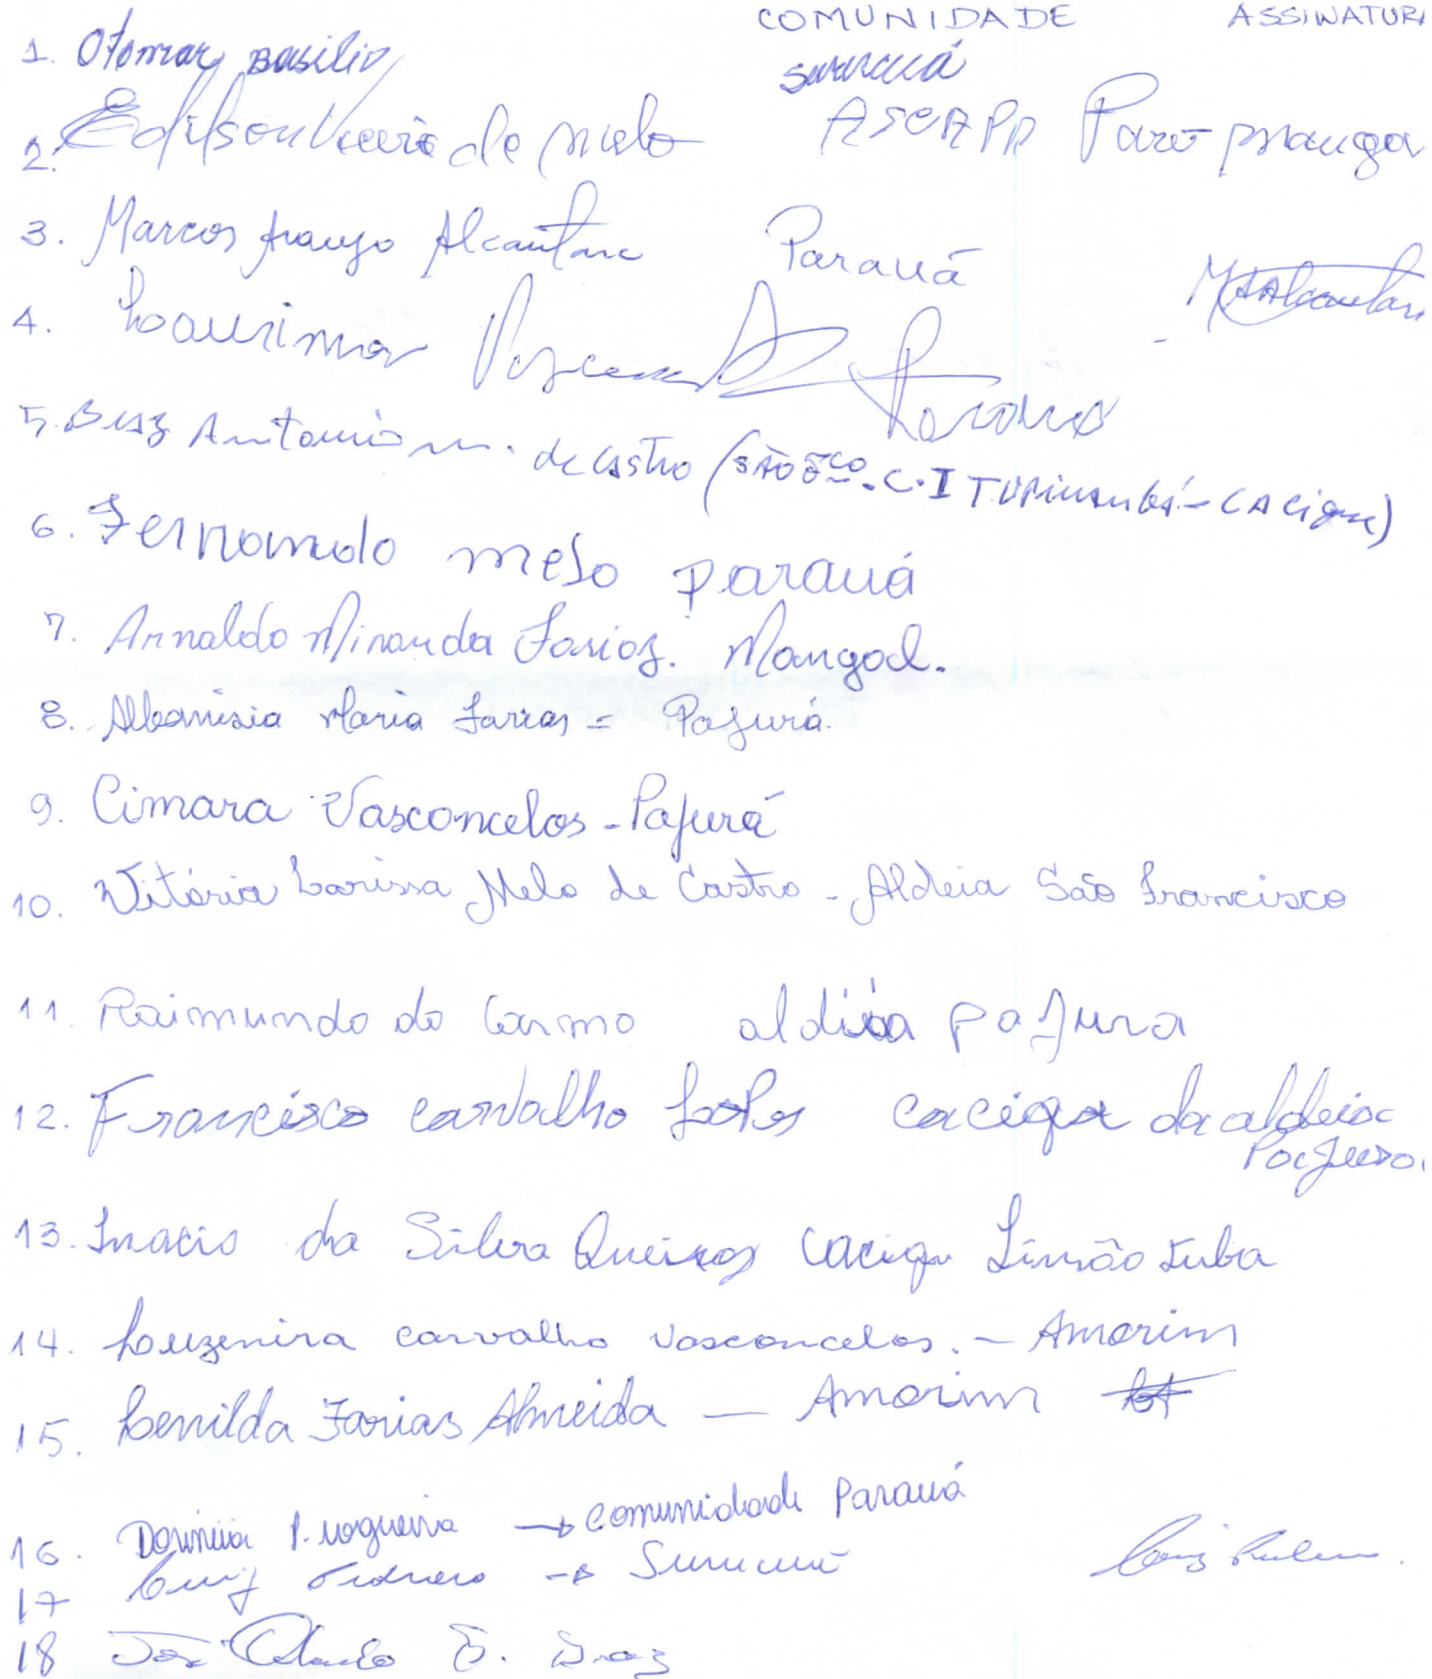 COMUNIDADE ASSINATURA
1. Otomar Basilio Surucuá
2. Edilson Vieira de Melo ASCAPA
3. Marcos Araujo Alcantara Parauá
4. Laurimar Parauá
5. Braz Antonio M. de Castro (São Fco. C.I Tupinambá - Cacique)
6. Fernando melo parauá
7. Arnaldo Miranda Farias. Mangal.
8. Albanisia Maria Farias = Pajurá.
9. Cimara Vasconcelos - Pajurá
10. Vitória Larissa Melo de Castro - Aldeia São Francisco
11. Raimundo do Carmo aldeia pajura
12. Francisco carvalho Lopes cacique da aldeia
Pajura.
13. Inacio da Silva Queiros Caciqu Limão tuba
14. Luzenira carvalho Vasconcelos. - Amorim
15. Lenilda Farias Almeida — Amorim
16. P. nogueira → comunidade Parauá
17 Luiz → Surucuá
18 José